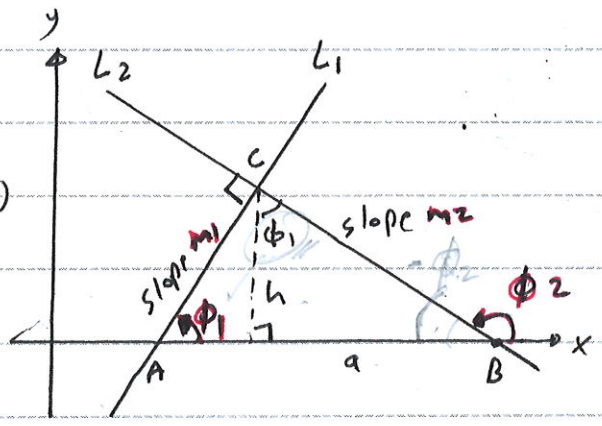 y
L2
L1
)
C
slope m1
ϕ1
slope m2
ϕ2
h
ϕ1
ϕ 2
x
A
a
B